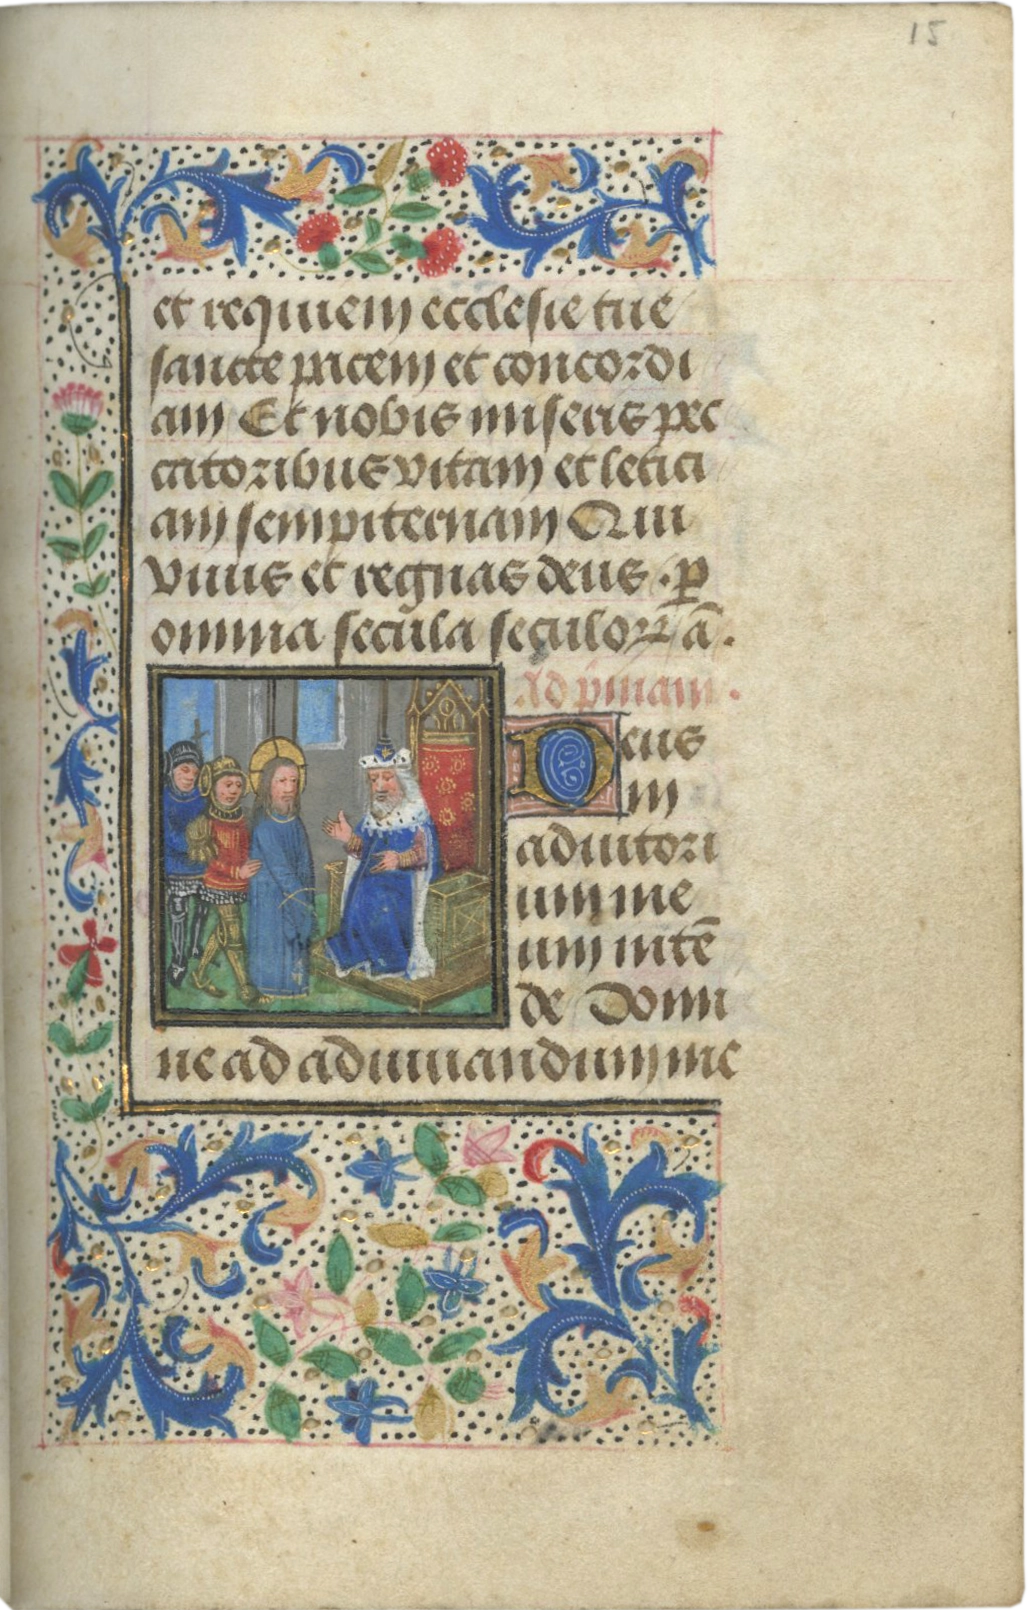 15
et requiem ecclesie tue
sancte pacem et concordi
am Et nobis miseris pec
catoribus vitam et letici
am sempiternam Qui
viuis et regnas deus · p̱
omnia secula seculoꝝ a̅ .
Ad p̱mam ·
Deus
in
adiutori
um me
um intē
de Domi
ne ad adiuuandum me